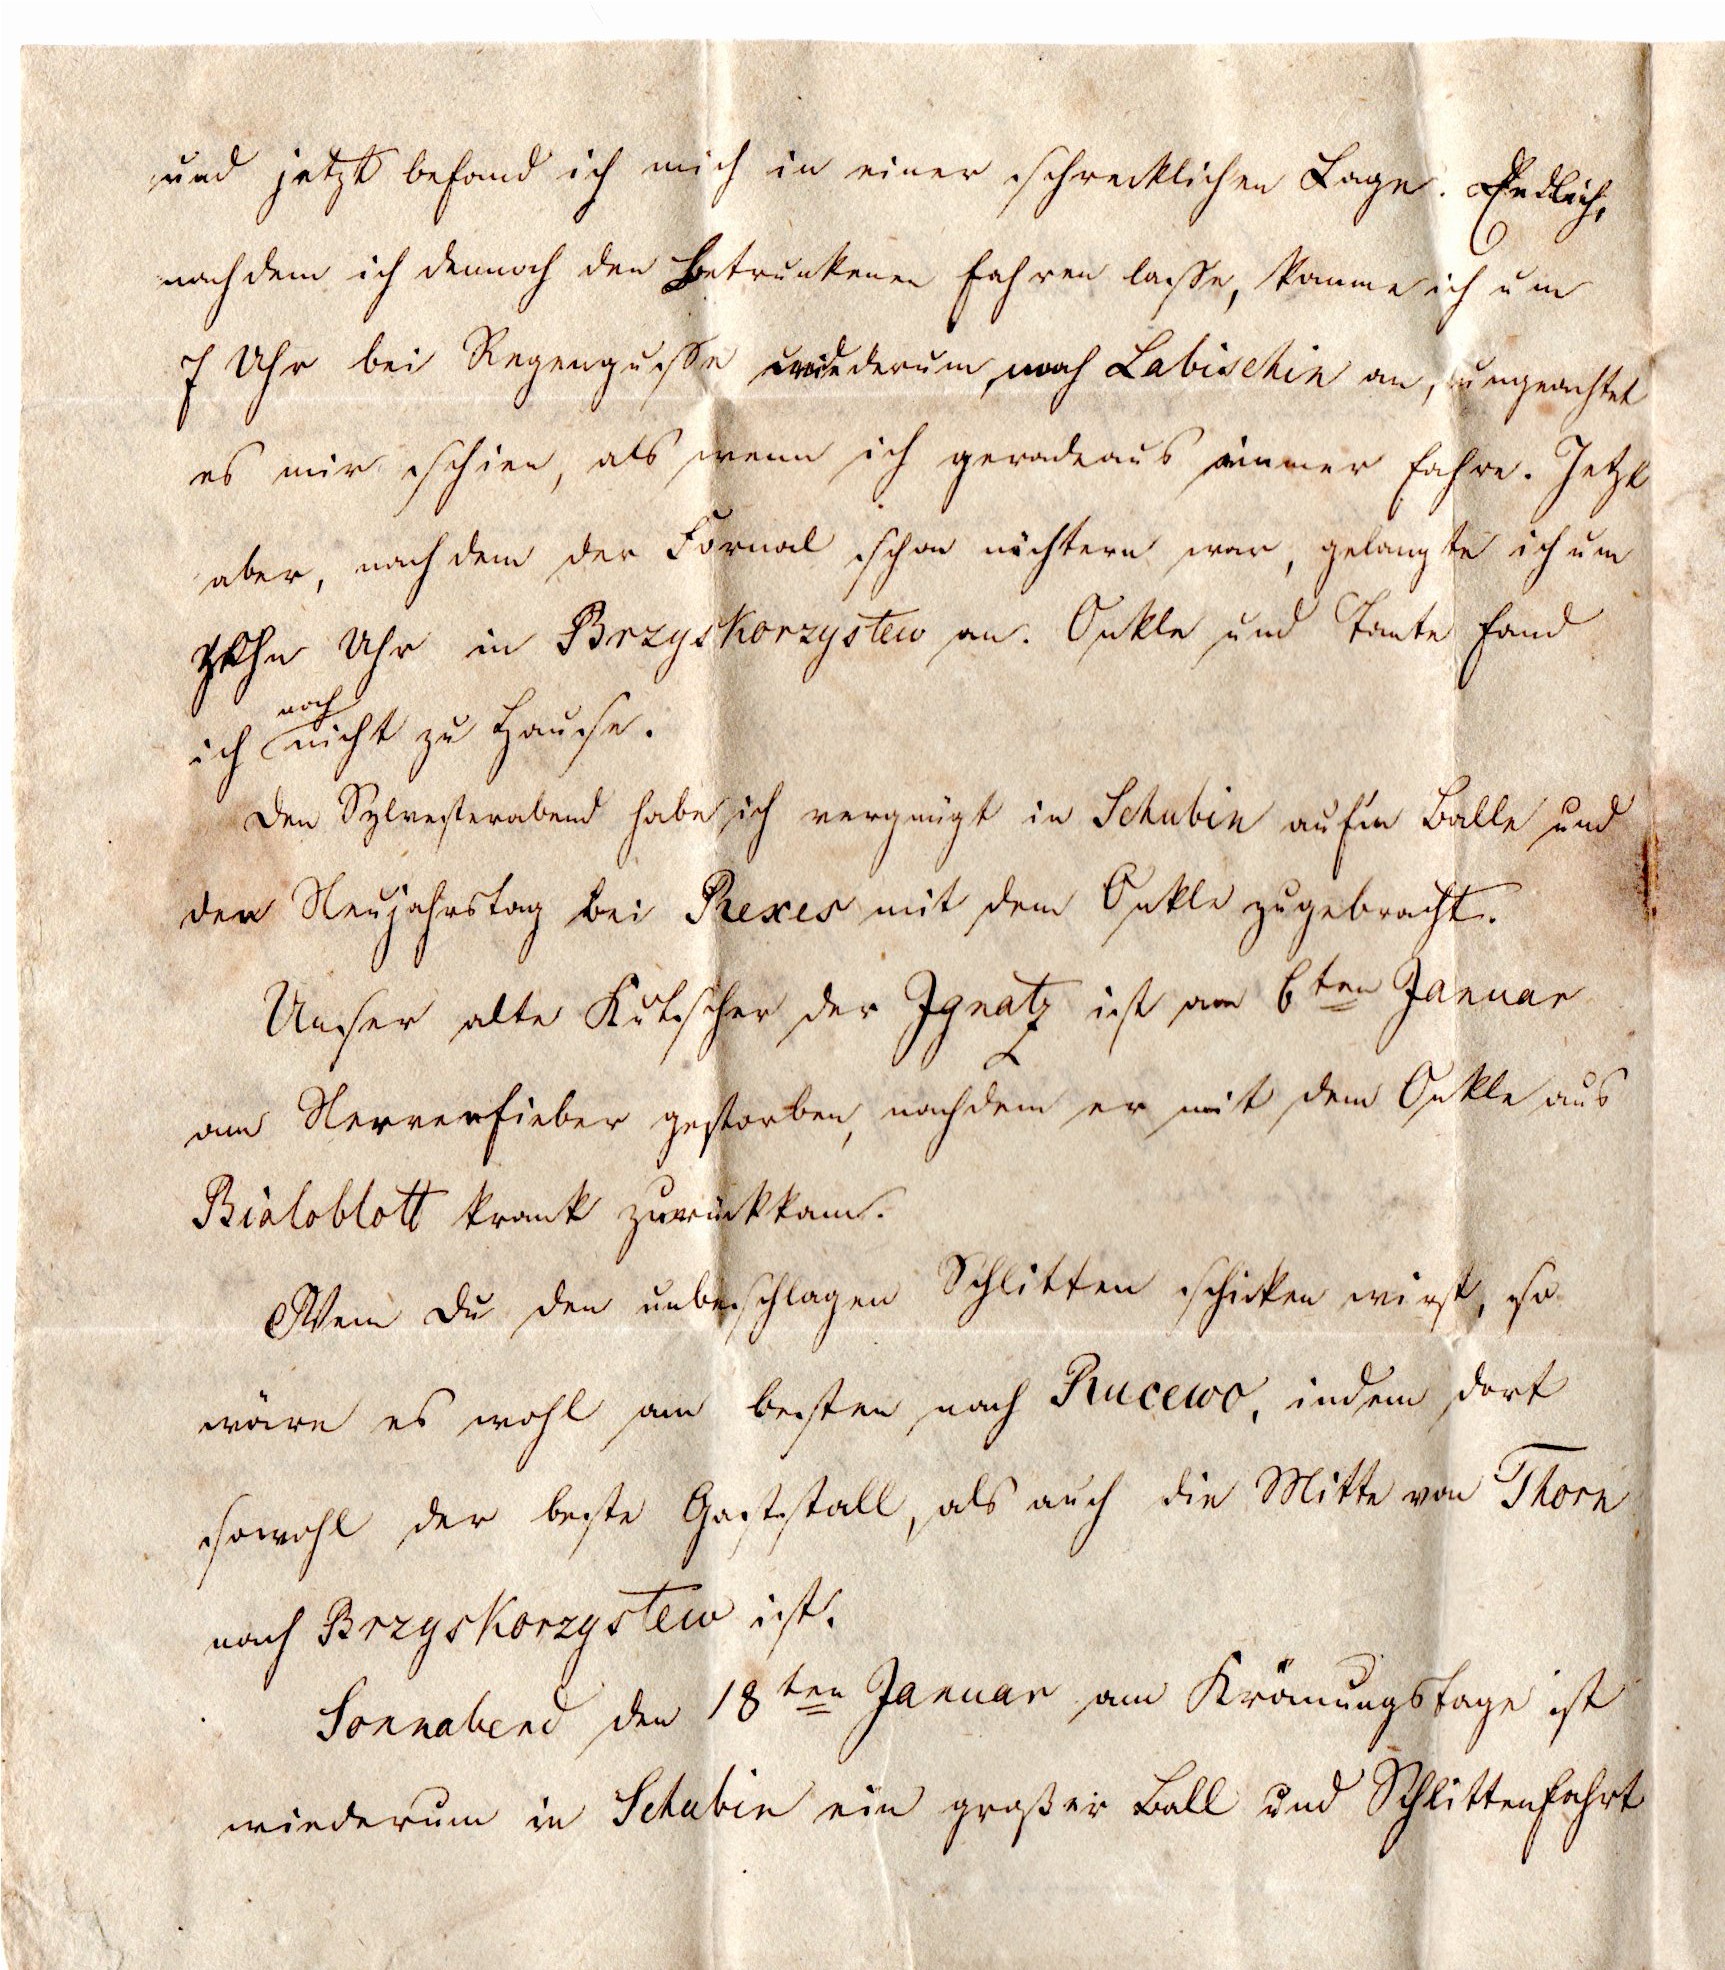 und jetzt befand ich mich in einer schrecklichen Lage. Endlich,
nachdem ich dennoch den Betrunkenen fahren lasse, komme ich um
7 Uhr bei Regengusse wiederum nach Labischin an, ungeachtet
es mir schien, als wenn ich geradeaus immer fahre. Jetzt
aber, nachdem der Fornal schon nüchtern war, gelangte ich um
zehn Uhr in Brzyskorzystew an. Onkle und Tante fand
ich noch nicht zu Hause.
Den Sylvesterabend habe ich vergnügt in Schubin auf'm Balle und
den Neujahrstag bei Rexes mit dem Onkle zugebracht.
Unser alte Kutscher der Ignatz ist am 6ten Januar
am Nervenfieber gestorben, nachdem er mit dem Onkle aus
Bialoblott krank zurückkam.
Wenn Du den unbeschlagen Schlitten schicken wirst, so
wäre es wohl am besten nach Rucewo, indem dort
sowohl der beste Gaststall, als auch die Mitte von Thorn
nach Brzyskorzystew ist.
Sonnabend den 18ten Januar am Krönungstage ist
wiederum in Schubin ein großer Ball und Schlittenfahrt